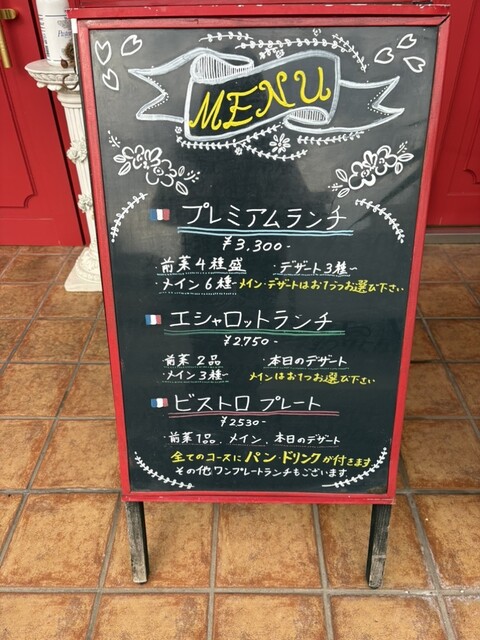 MENU
プレミアムランチ
¥3,300-
・前菜4種盛 ・デザート3種〜
・メイン6種〜 メイン・デザートはお1つお選び下さい
エシャロットランチ
¥2,750-
前菜2品 ・本日のデザート
・メイン3種〜 メインはお1つお選び下さい
ビストロ プレート
¥2530-
・前菜1品、メイン、本日のデザート
全てのコースにパン・ドリンクが付きます
その他ワンプレートランチもございます